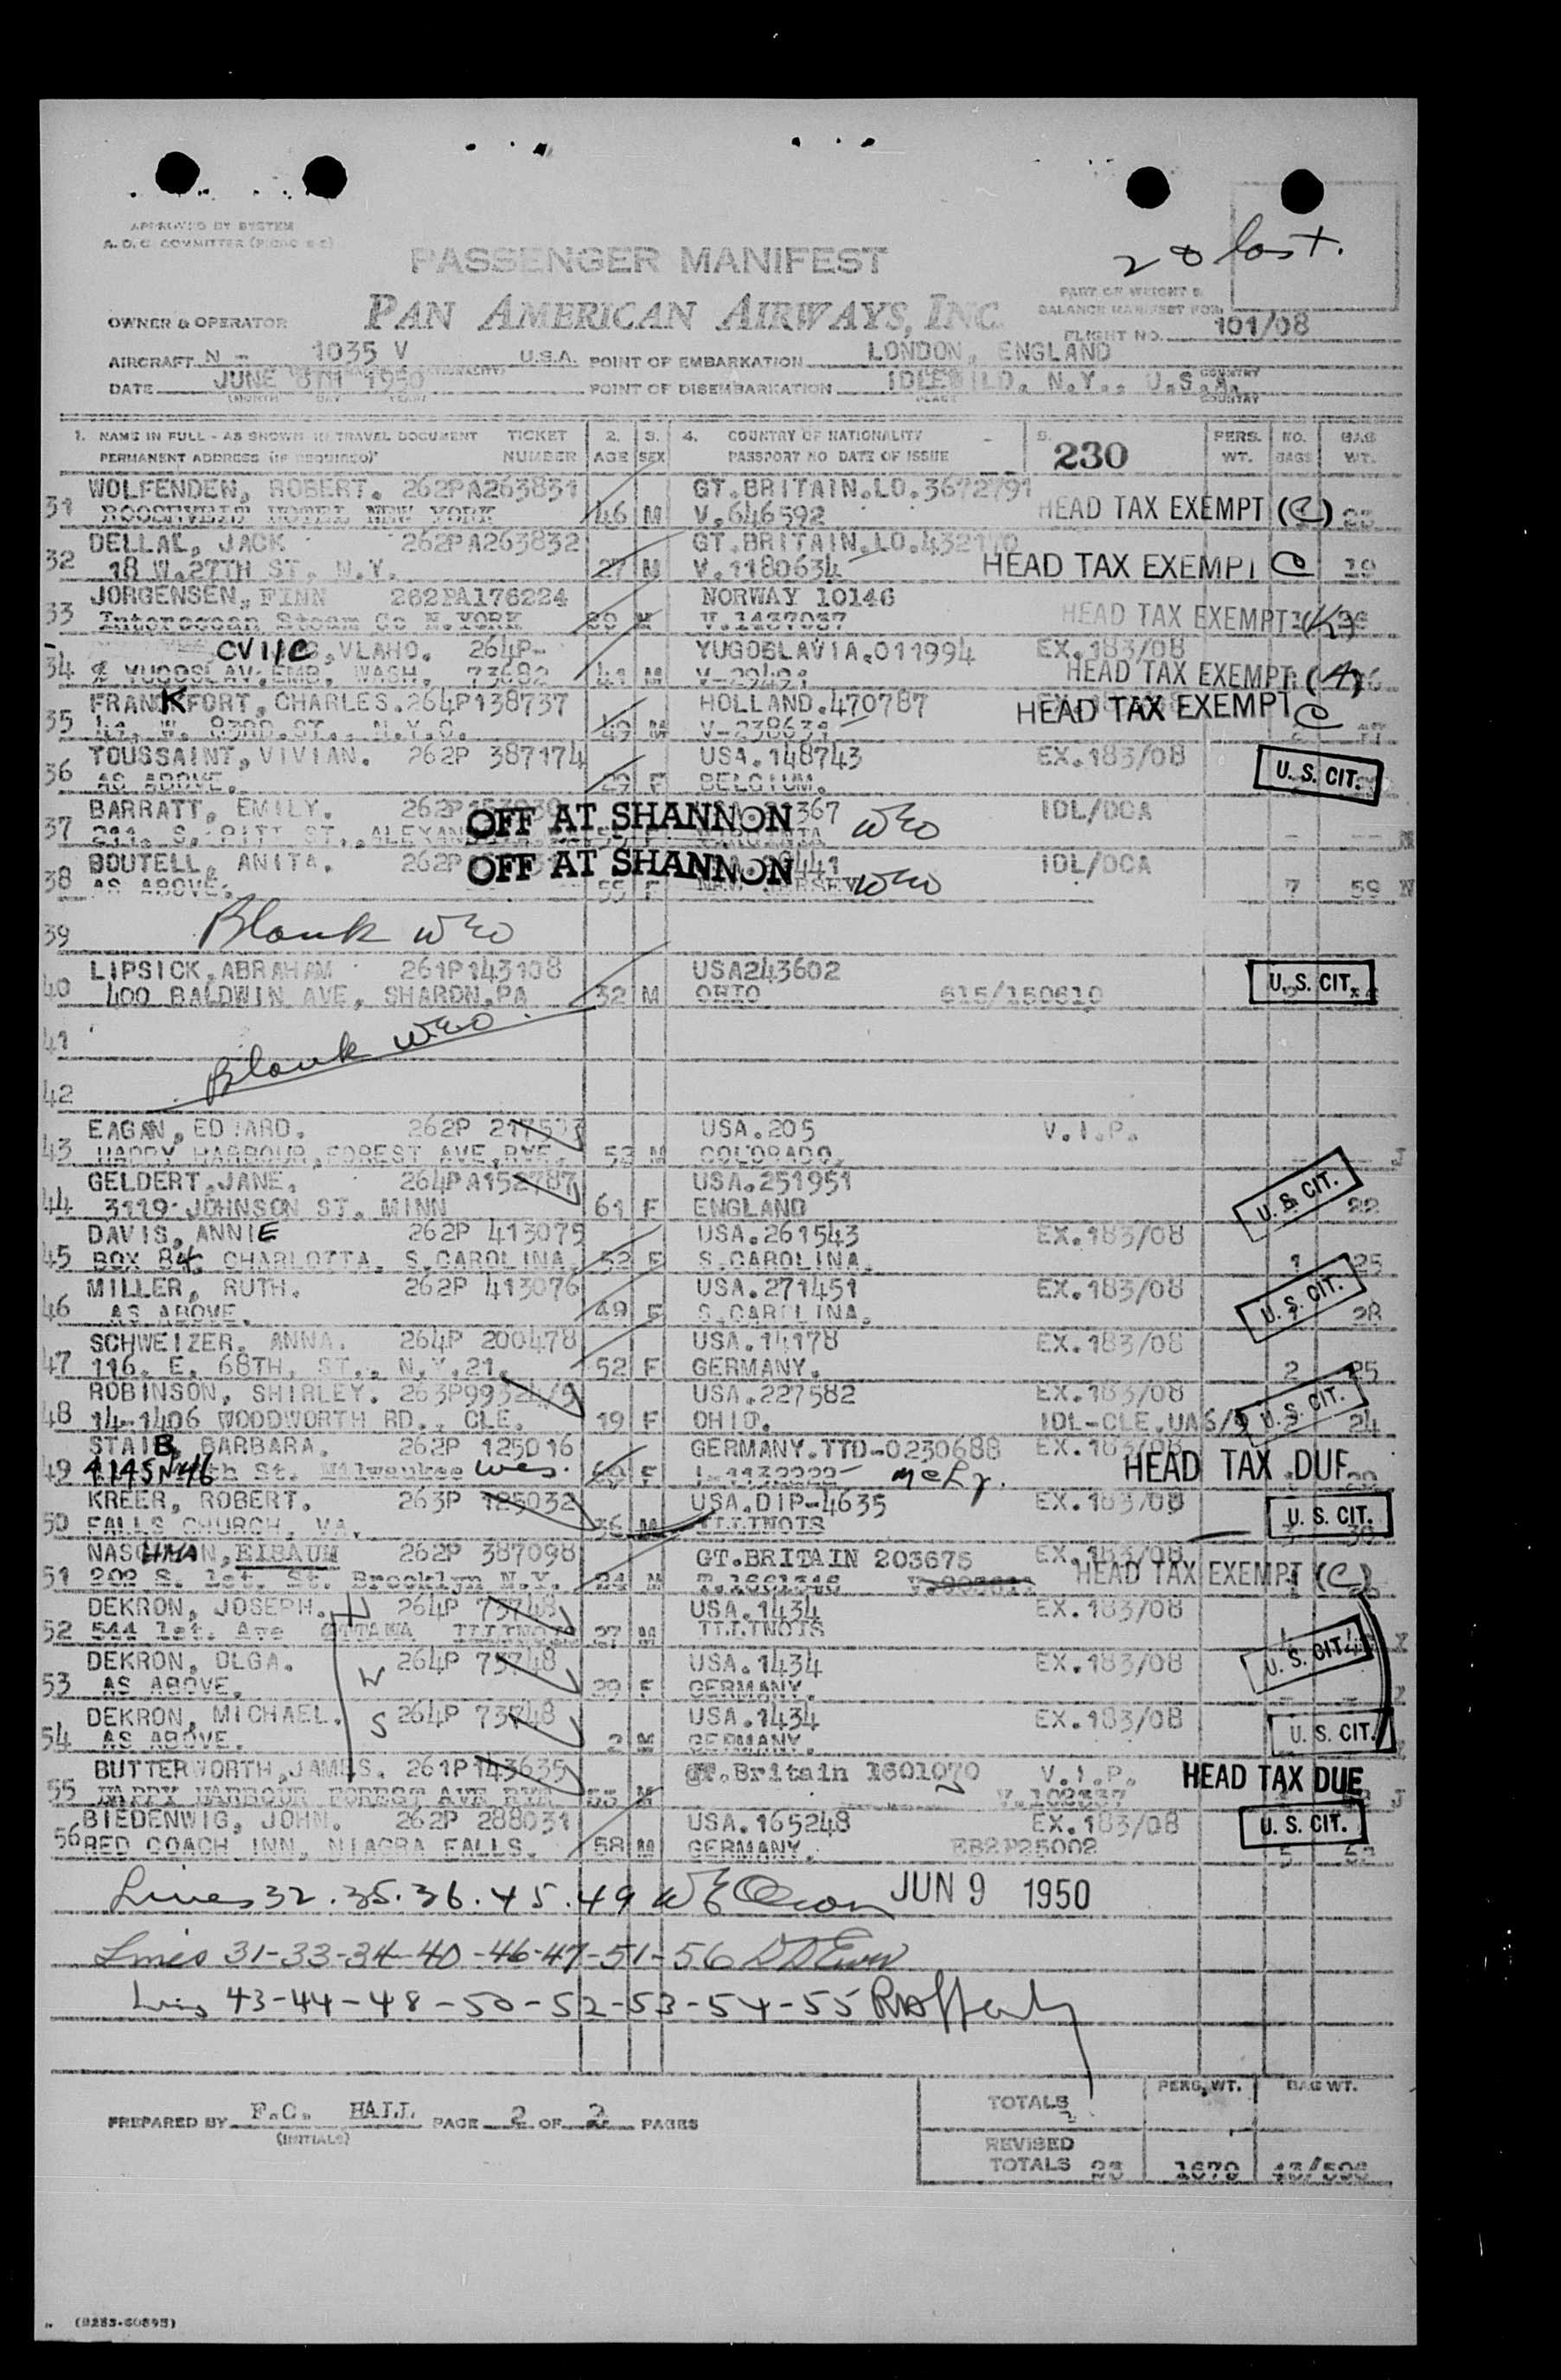 APPROVED BY SYSTEM
A.O.C. COMMITTEE
PASSENGER MANIFEST
28 last.
PART OF WEIGHT &
BALANCE MANIFEST FOR
OWNER & OPERATOR PAN AMERICAN AIRWAYS, INC.
FLIGHT NO. 101/08
AIRCRAFT N - 1035 V U.S.A. POINT OF EMBARKATION LONDON, ENGLAND
DATE JUNE 8TH 1950 POINT OF DISEMBARKATION IDLEWILD, N.Y., U.S.A.
(MONTH DAY YEAR) PLACE COUNTRY
1. NAME IN FULL - AS SHOWN IN TRAVEL DOCUMENT TICKET 2. 3. 4. COUNTRY OF NATIONALITY 5. 230 PERS. NO. BAG
PERMANENT ADDRESS (IF REQUIRED) NUMBER AGE SEX PASSPORT NO DATE OF ISSUE WT. BAGS WT.
WOLFENDEN, ROBERT. 262PA263831 GT.BRITAIN.LO.3672791
31 ROOSEVELT HOTEL NEW YORK 46 M V.646592 HEAD TAX EXEMPT (C) 23
DELLAL, JACK 262PA263832 GT.BRITAIN.LO.432170
32 18 W.27TH ST. N.Y. 27 M V.1180634 HEAD TAX EXEMPT C 19
JORGENSEN, FINN 262PA176224 NORWAY 10146
33 Interocean Steam Co N.YORK 29 M V.1437037 HEAD TAX EXEMPT
CVIIC, VLAHO. 264P- YUGOSLAVIA.011994 EX.183/08
34 % YUGOSLAV.EMB. WASH. 73682 41 M V-29491 HEAD TAX EXEMPT (A)
FRANKFORT, CHARLES. 264P138737 HOLLAND.470787
35 41, W. 83RD.ST., N.Y.C. 49 M V-238631 HEAD TAX EXEMPT C
TOUSSAINT, VIVIAN. 262P 387174 USA.148743 EX.183/08
36 AS ABOVE. 29 F BELGIUM. U.S. CIT.
BARRATT, EMILY. 262P OFF AT SHANNON 367 WEO IDL/DCA
37 211. S. PITT ST., ALEXAN F VIRGINIA N
BOUTELL, ANITA. 262P OFF AT SHANNON 441 WEO IDL/DCA
38 AS ABOVE. 55 F NEW JERSEY 7 59 N
39 Blank WEO
LIPSICK, ABRAHAM 261P143108 USA243602
40 400 BALDWIN AVE, SHARON,PA 32 M OHIO 615/150610 U.S. CIT.
41 Blank WEO
42
EAGAN, EDWARD. 262P USA.205 V.I.P.
43 HAPPY HARBOUR, FOREST AVE,RYE. 52 M COLORADO. J
GELDERT, JANE. 264PA152787 USA.251951
44 3119 JOHNSON ST. MINN 61 F ENGLAND U.S. CIT. 22
DAVIS, ANNIE 262P 413075 USA.261543 EX.183/08
45 BOX 84, CHARLOTTA, S.CAROLINA. 52 F S.CAROLINA. 1 25
MILLER, RUTH. 262P 413076 USA.271451 EX.183/08
46 AS ABOVE. 49 F S.CAROLINA. U.S. CIT. 28
SCHWEIZER, ANNA. 264P 200478 USA.14178 EX.183/08
47 116. E. 68TH. ST., N.Y.21. 52 F GERMANY. 2 25
ROBINSON, SHIRLEY. 263P99324/5 USA.227582 EX.183/08
48 14-1406 WOODWORTH RD., CLE. 19 F OHIO. IDL-CLE.UA6/9 U.S. CIT. 24
STAIB, BARBARA. 262P 125016 GERMANY.TTD-0230688 EX.183/08
49 4145N46th St. Milwaukee Wes. 69 F I-1132222 HEAD TAX DUE
KREER, ROBERT. 263P 125032 USA.DIP-4635 EX.183/08
50 FALLS CHURCH, VA. 36 M ILLINOIS U.S. CIT. 3 30
NASCHMAN, EIBAUM 262P 387098 GT.BRITAIN 203675 EX.183/08
51 202 S. 1st. St. Brooklyn N.Y. 24 M T.1661348 HEAD TAX EXEMPT (C)
DEKRON, JOSEPH. H 264P 73748 USA.1434 EX.183/08
52 544 1st. Ave OTTAWA ILLINOIS 27 M ILLINOIS X
DEKRON, OLGA. W 264P 73748 USA.1434 EX.183/08 U.S. CIT.
53 AS ABOVE. 29 F GERMANY.
DEKRON, MICHAEL. S 264P 73748 USA.1434 EX.183/08
54 AS ABOVE. 2 M GERMANY. U.S. CIT.
BUTTERWORTH, JAMES. 261P143635 GT.Britain 1601070 V.I.P. HEAD TAX DUE
55 HAPPY HARBOUR FOREST AVE RYE 53 M V.102337 J
BIEDENWIG, JOHN. 262P 288031 USA.165248 EX.183/08 U.S. CIT.
56 RED COACH INN, NIAGRA FALLS. 58 M GERMANY. EB2P25002 5 62
Lines 32.35.36.45.49 JUN 9 1950
Lines 31-33-34-40-46-47-51-56
Lines 43-44-48-50-52-53-54-55 Rafferty
PREPARED BY F.C. HALL PAGE 2 OF 2 PAGES
(INITIALS)
PERS. WT. BAG WT.
TOTALS
REVISED
TOTALS 23 1679 43/596